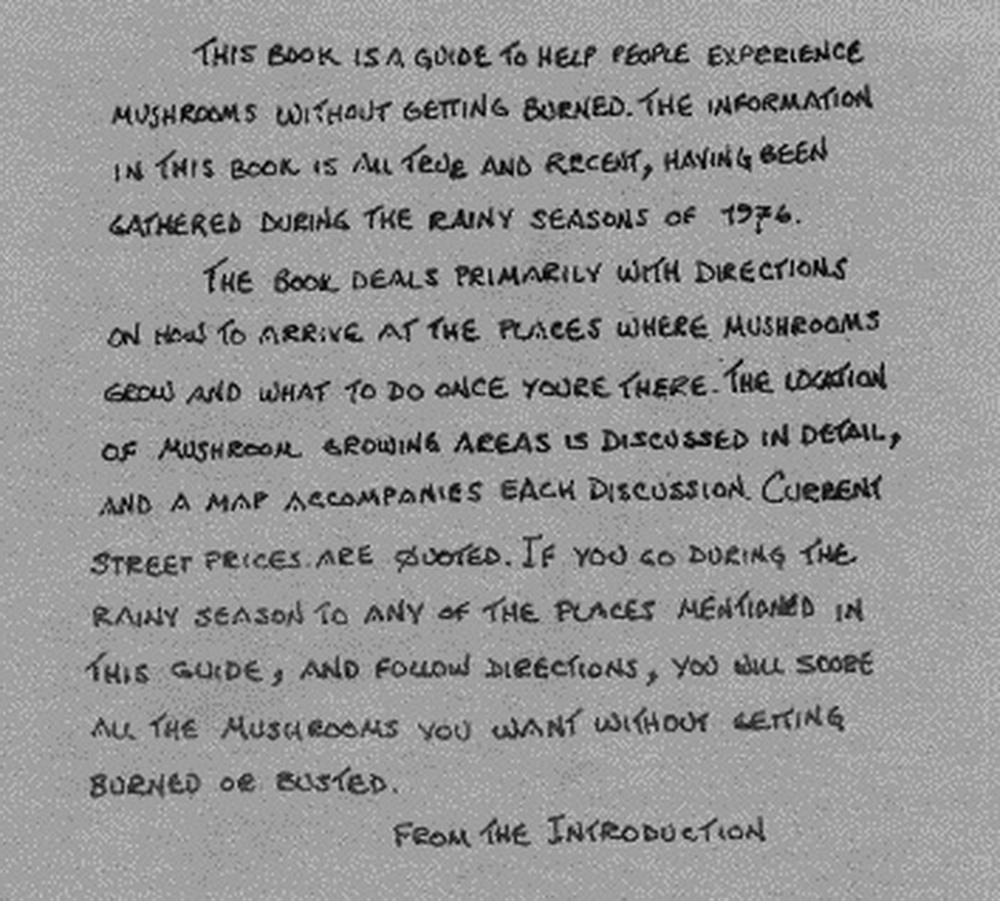 THIS BOOK IS A GUIDE TO HELP PEOPLE EXPERIENCE
MUSHROOMS WITHOUT GETTING BURNED. THE INFORMATION
IN THIS BOOK IS ALL TRUE AND RECENT, HAVING BEEN
GATHERED DURING THE RAINY SEASONS OF 1976.
THE BOOK DEALS PRIMARILY WITH DIRECTIONS
ON HOW TO ARRIVE AT THE PLACES WHERE MUSHROOMS
GROW AND WHAT TO DO ONCE YOURE THERE. THE LOCATION
OF MUSHROOM GROWING AREAS IS DISCUSSED IN DETAIL,
AND A MAP ACCOMPANIES EACH DISCUSSION. CURRENT
STREET PRICES ARE QUOTED. IF YOU GO DURING THE
RAINY SEASON TO ANY OF THE PLACES MENTIONED IN
THIS GUIDE, AND FOLLOW DIRECTIONS, YOU WILL SCORE
ALL THE MUSHROOMS YOU WANT WITHOUT GETTING
BURNED OR BUSTED.
FROM THE INTRODUCTION